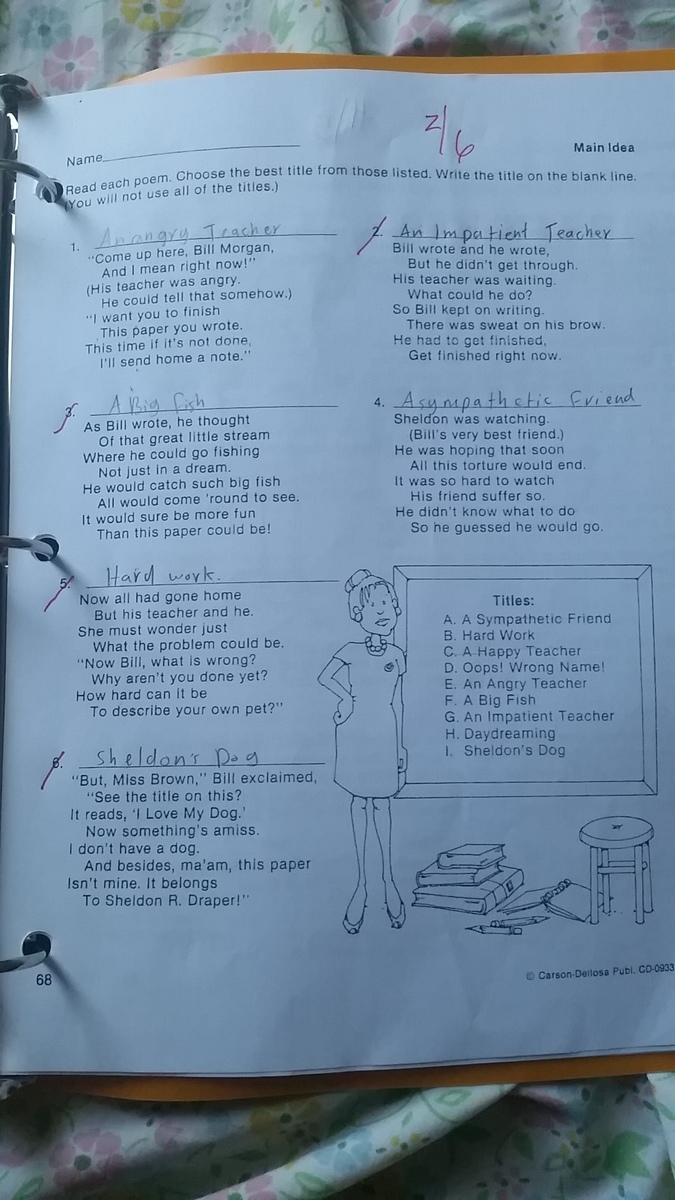 2/6
Name
Main Idea
Read each poem. Choose the best title from those listed. Write the title on the blank line.
(You will not use all of the titles.)
1. An angry Teacher
"Come up here, Bill Morgan,
And I mean right now!"
(His teacher was angry.
He could tell that somehow.)
"I want you to finish
This paper you wrote.
This time if it's not done,
I'll send home a note."
2. An Impatient Teacher
Bill wrote and he wrote,
But he didn't get through.
His teacher was waiting.
What could he do?
So Bill kept on writing.
There was sweat on his brow.
He had to get finished,
Get finished right now.
3. A Big fish
As Bill wrote, he thought
Of that great little stream
Where he could go fishing
Not just in a dream.
He would catch such big fish
All would come 'round to see.
It would sure be more fun
Than this paper could be!
4. A sympathetic Friend
Sheldon was watching.
(Bill's very best friend.)
He was hoping that soon
All this torture would end.
It was so hard to watch
His friend suffer so.
He didn't know what to do
So he guessed he would go.
5. Hard work.
Now all had gone home
But his teacher and he.
She must wonder just
What the problem could be.
"Now Bill, what is wrong?
Why aren't you done yet?
How hard can it be
To describe your own pet?"
6. Sheldon's Dog
"But, Miss Brown," Bill exclaimed,
"See the title on this?
It reads, 'I Love My Dog.'
Now something's amiss.
I don't have a dog.
And besides, ma'am, this paper
Isn't mine. It belongs
To Sheldon R. Draper!"
Titles:
A. A Sympathetic Friend
B. Hard Work
C. A Happy Teacher
D. Oops! Wrong Name!
E. An Angry Teacher
F. A Big Fish
G. An Impatient Teacher
H. Daydreaming
I. Sheldon's Dog
68
© Carson-Dellosa Publ. CD-0933